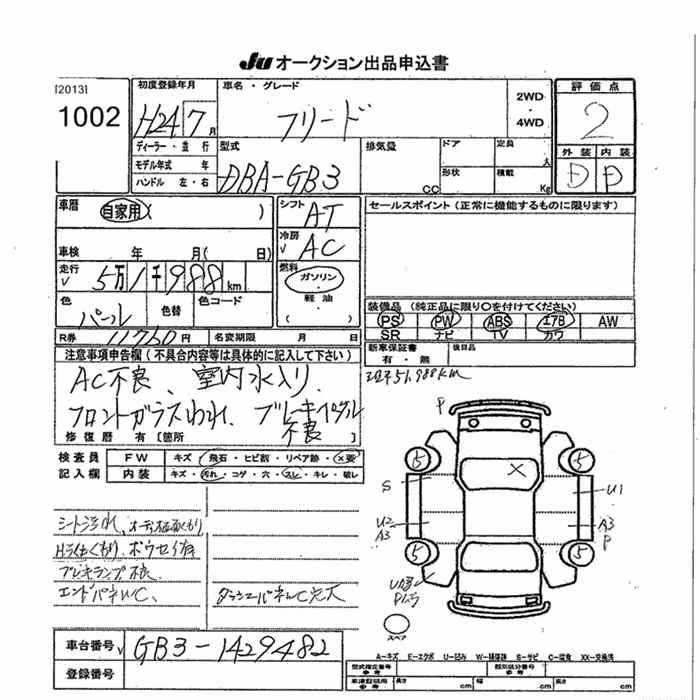 JU オークション出品申込書
[2013]
1002
初度登録年月
H24 7月
車名・グレード
フリード
2WD・4WD
評価点
2
外装 内装
D D
ディーラー・並行
モデル年式 年
ハンドル 左・右
型式
DBA-GB3
排気量
CC
ドア
形状
定員
人
積載
Kg
車歴
自家用( )
車検 年 月( 日)
シフト
AT
冷房
AC
セールスポイント(正常に機能するものに限ります)
走行
5万1千988km
燃料
ガソリン・軽油・( )
色
パール
色替
色コード
R券 11760円
名変期限 月 日
装備品(純正品に限り○を付けてください)
PS PW ABS エアB AW
SR ナビ TV カワ
新車保証書
有・無
後日品
注意事項申告欄(不具合内容等は具体的に記入して下さい)
AC不良、室内水入り
フロントガラスわれ、ブレーキペダル
不良
修復歴 有[箇所
51,988km
検査員
記入欄
FW キズ・飛石・ヒビ割・リペア跡・×要
内装 キズ・汚れ・コゲ・穴・スレ・キレ・破レ
P
S
U2
A3
U1
A3
P
×
5 5 5 5
スペア
シート汚れ、
Hライトくもり、
ブレーキランプ不良
エンドパネルC、
車台番号 GB3-1429482
登録番号
A-キズ E-エクボ U-凹み W-補修跡 S-サビ C-腐食 XX-交換済
型式指定番号
参考
類別区分番号
参考
車庫証明用
参考
長さ cm
幅 cm
高さ cm